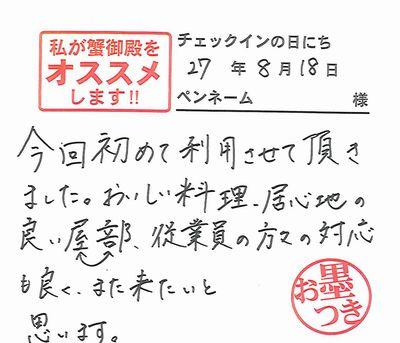 私が蟹御殿を
オススメ
します!!
チェックインの日にち
27 年 8月 18日
ペンネーム 様
今回初めて利用させて頂き
ました。おいしい料理、居心地の
良い屋部、従業員の方々の対応
も良く、また来たいと
思います。
お墨
つき